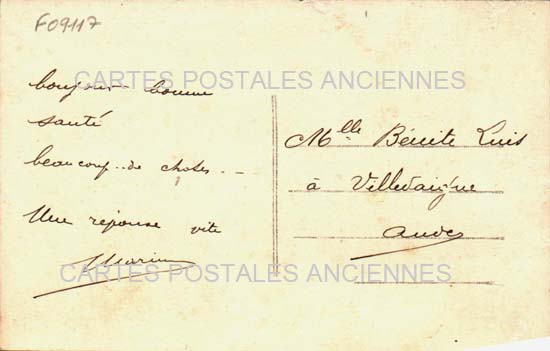 F09117
bonjour bonne
CARTES POSTALES ANCIENNES
santé
beaucoup.. de choses...
Une réponse vite
Marin
Mlle Bénite Luis
à Villedaigne
Aude
CARTES POSTALES ANCIENNES